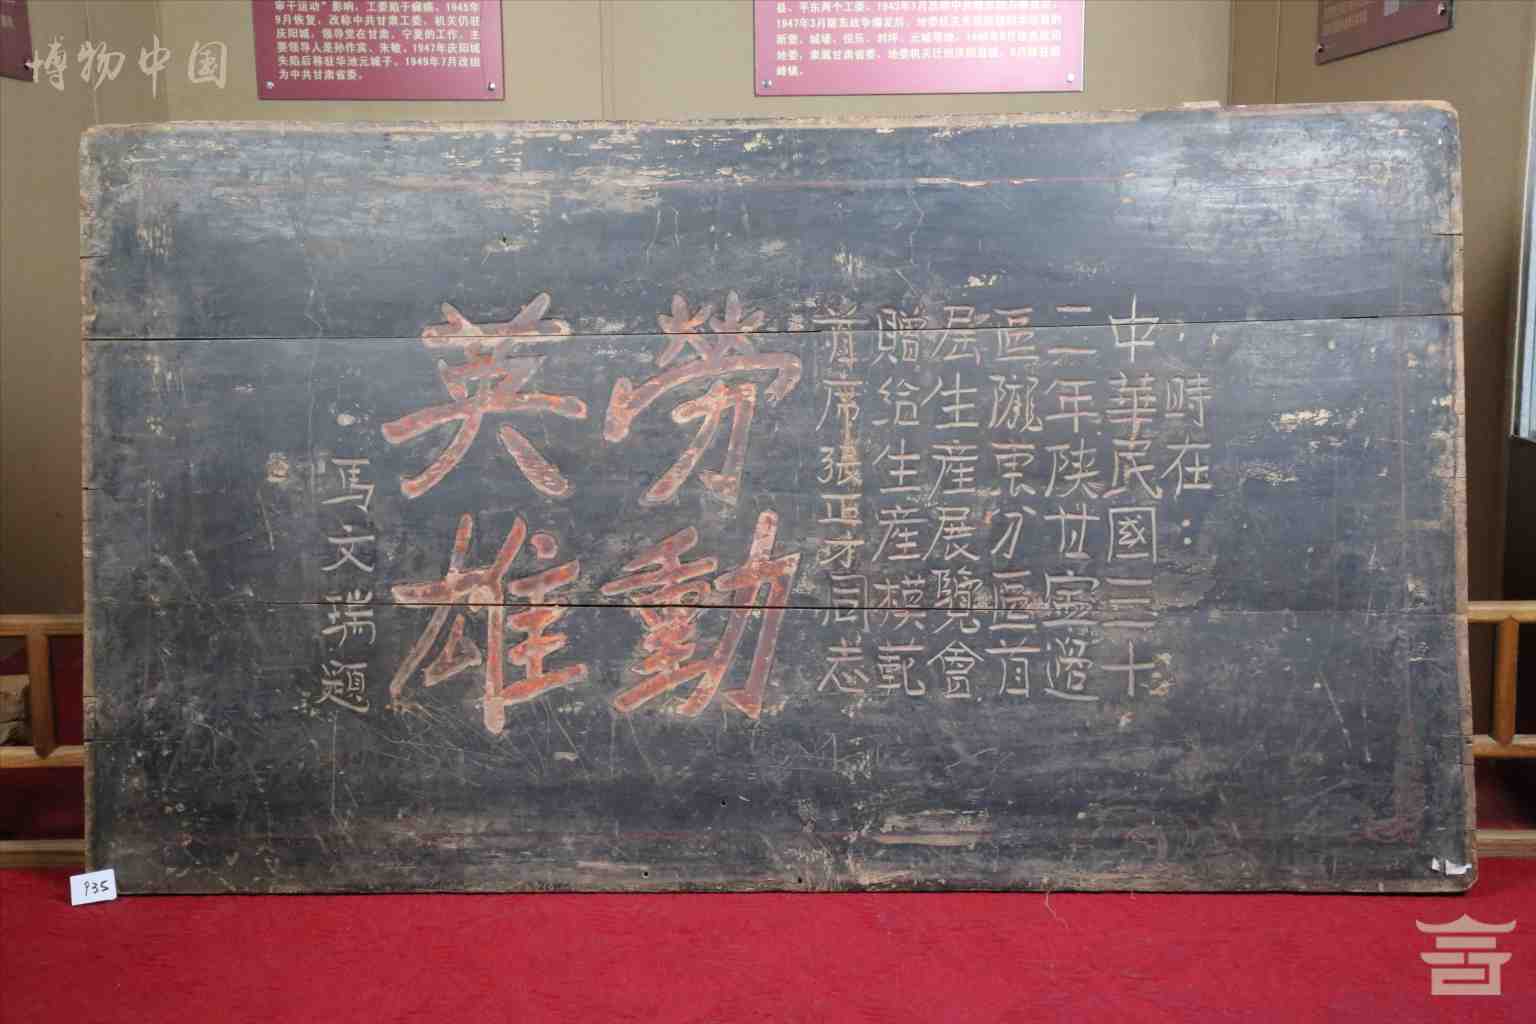 博物中国
审干运动”影响，工委陷于瘫痪。1945年
9月恢复，改称中共甘肃工委，机关仍驻
庆阳城，领导党在甘肃、宁夏的工作，主
要领导人是孙作宾、朱敏。1947年庆阳城
失陷后移驻华池元城子。1949年7月改组
为中共甘肃省委。
峰镇。
時在：
中華民國三十
二年陝甘寧邊
區隴東分區首
屆生產展覽會
贈給生產模範
首席張正才同志
勞動
英雄
馬文瑞題
935